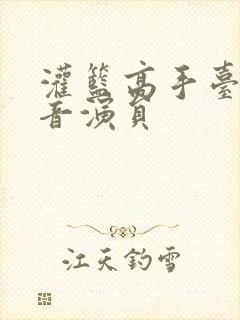 灌籃高手臺
音演員
江天釣雪